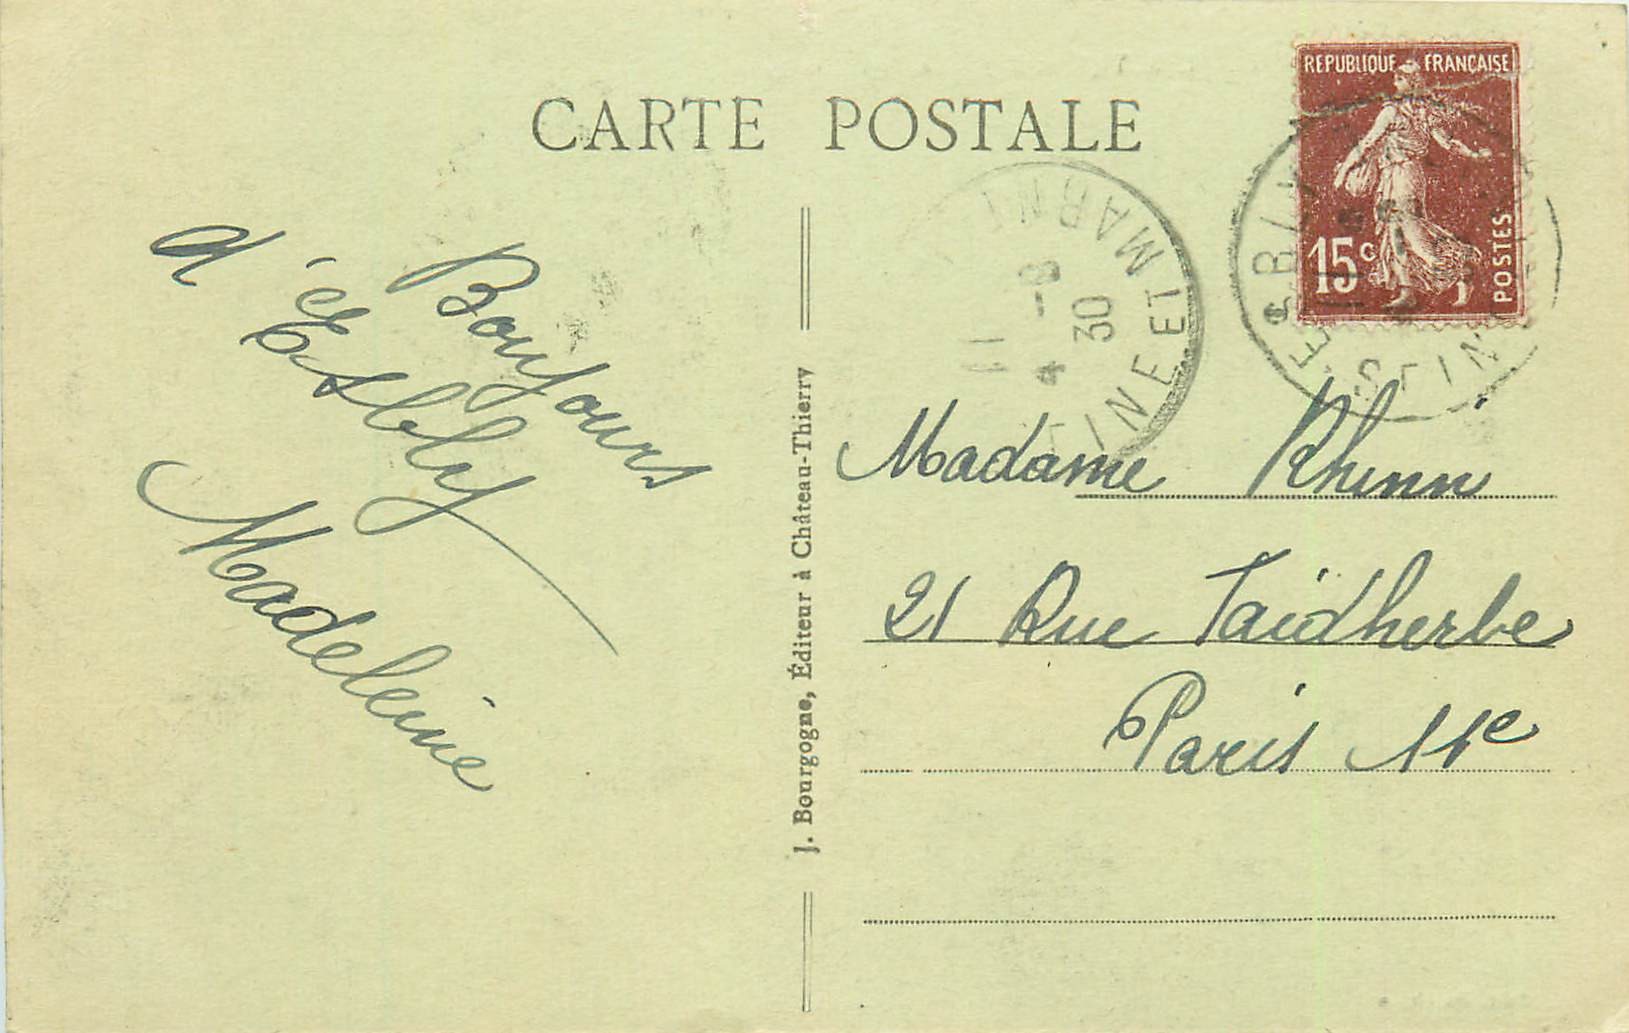 CARTE POSTALE
REPUBLIQUE FRANÇAISE
15c
POSTES
SEINE ET MARNE
11 -8
4 30
Bonjours
d'Esbly
Madeleine
J. Bourgogne, Éditeur à Château-Thierry
Madame Rhinn
21 Rue Faidherbe
Paris 11e